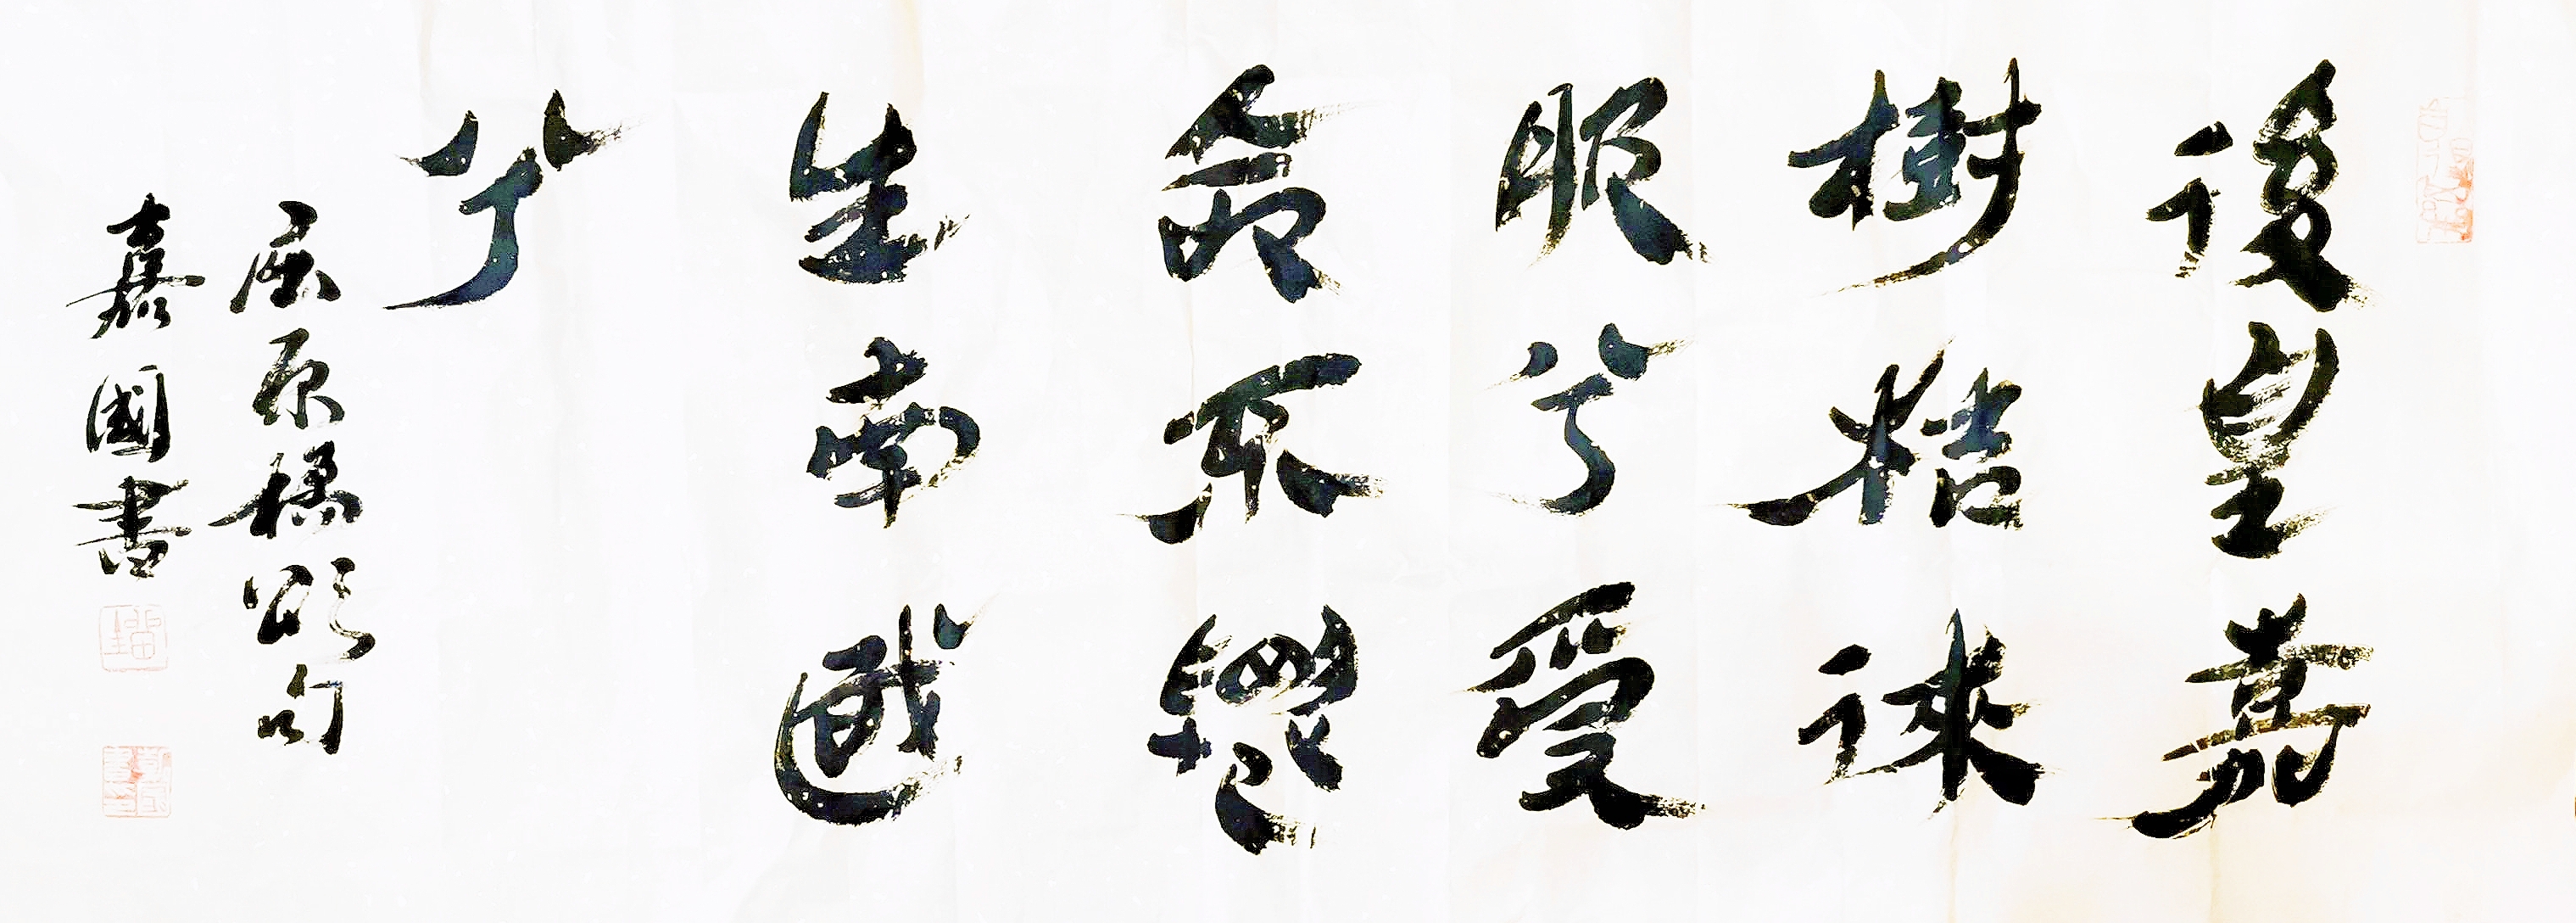 後皇嘉
樹桔徠
服兮受
命不遷
生南國
兮
屈原橘頌句
嘉國書